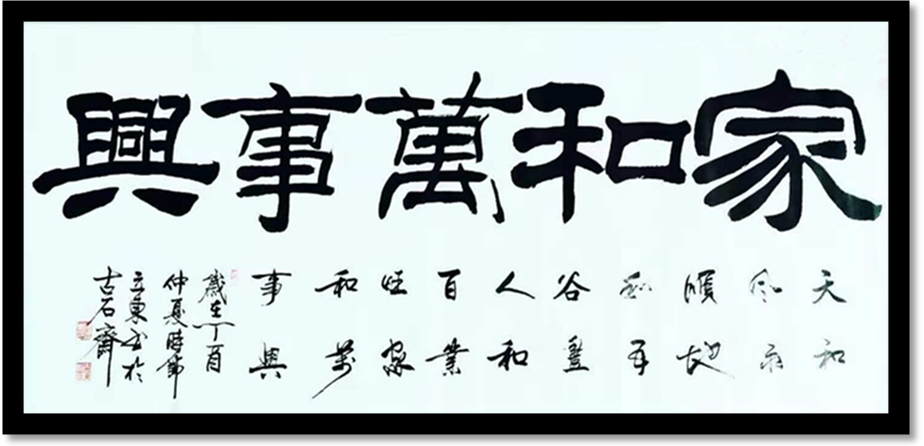 家和萬事興
天和
風雨
順地
和年
谷豐
人和
百業
旺家
和萬
事興
歲在丁酉
仲夏時節
立東书於
古石齋